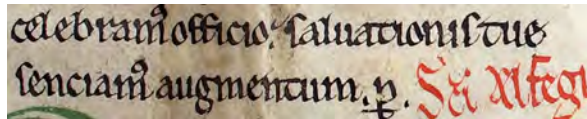 celebram᷒ officio. saluationis tue
senciam᷒ augmentum. p.